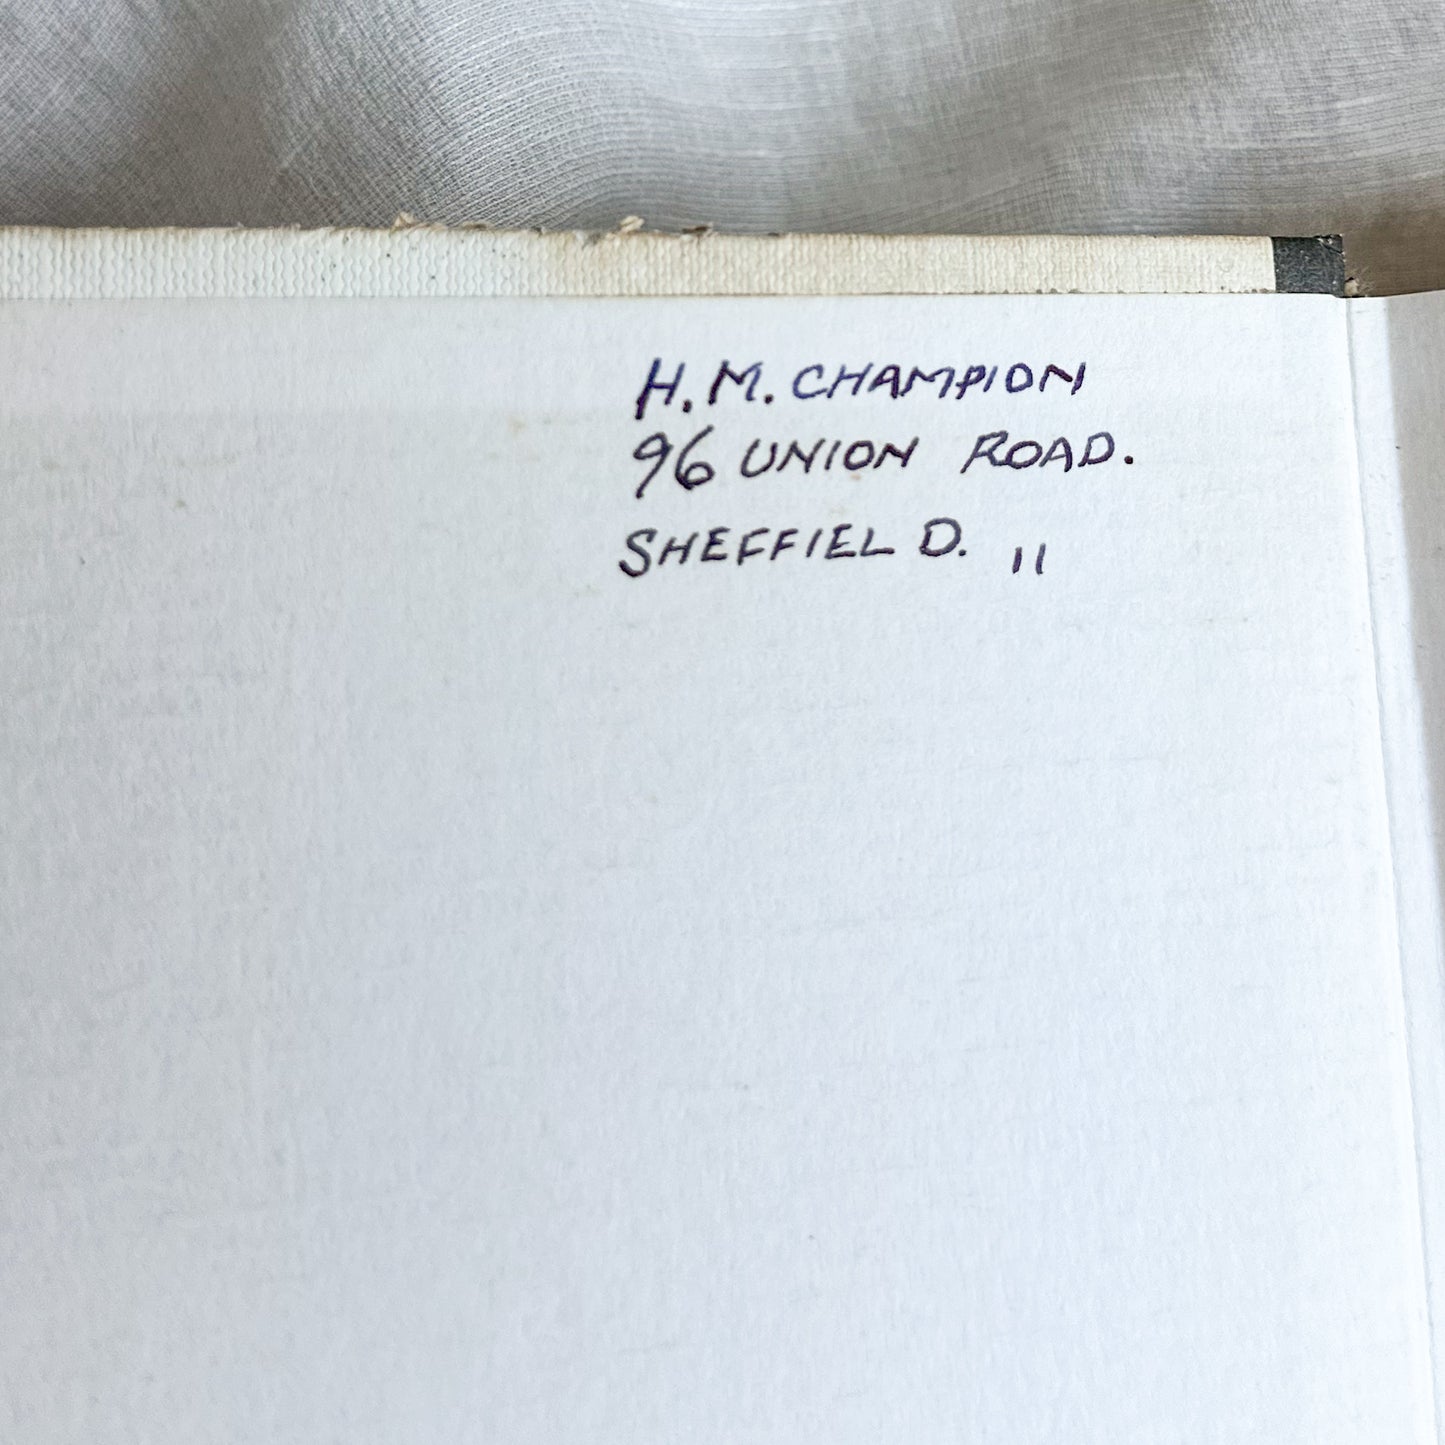 H. M. CHAMPION
96 UNION ROAD.
SHEFFIELD. 11